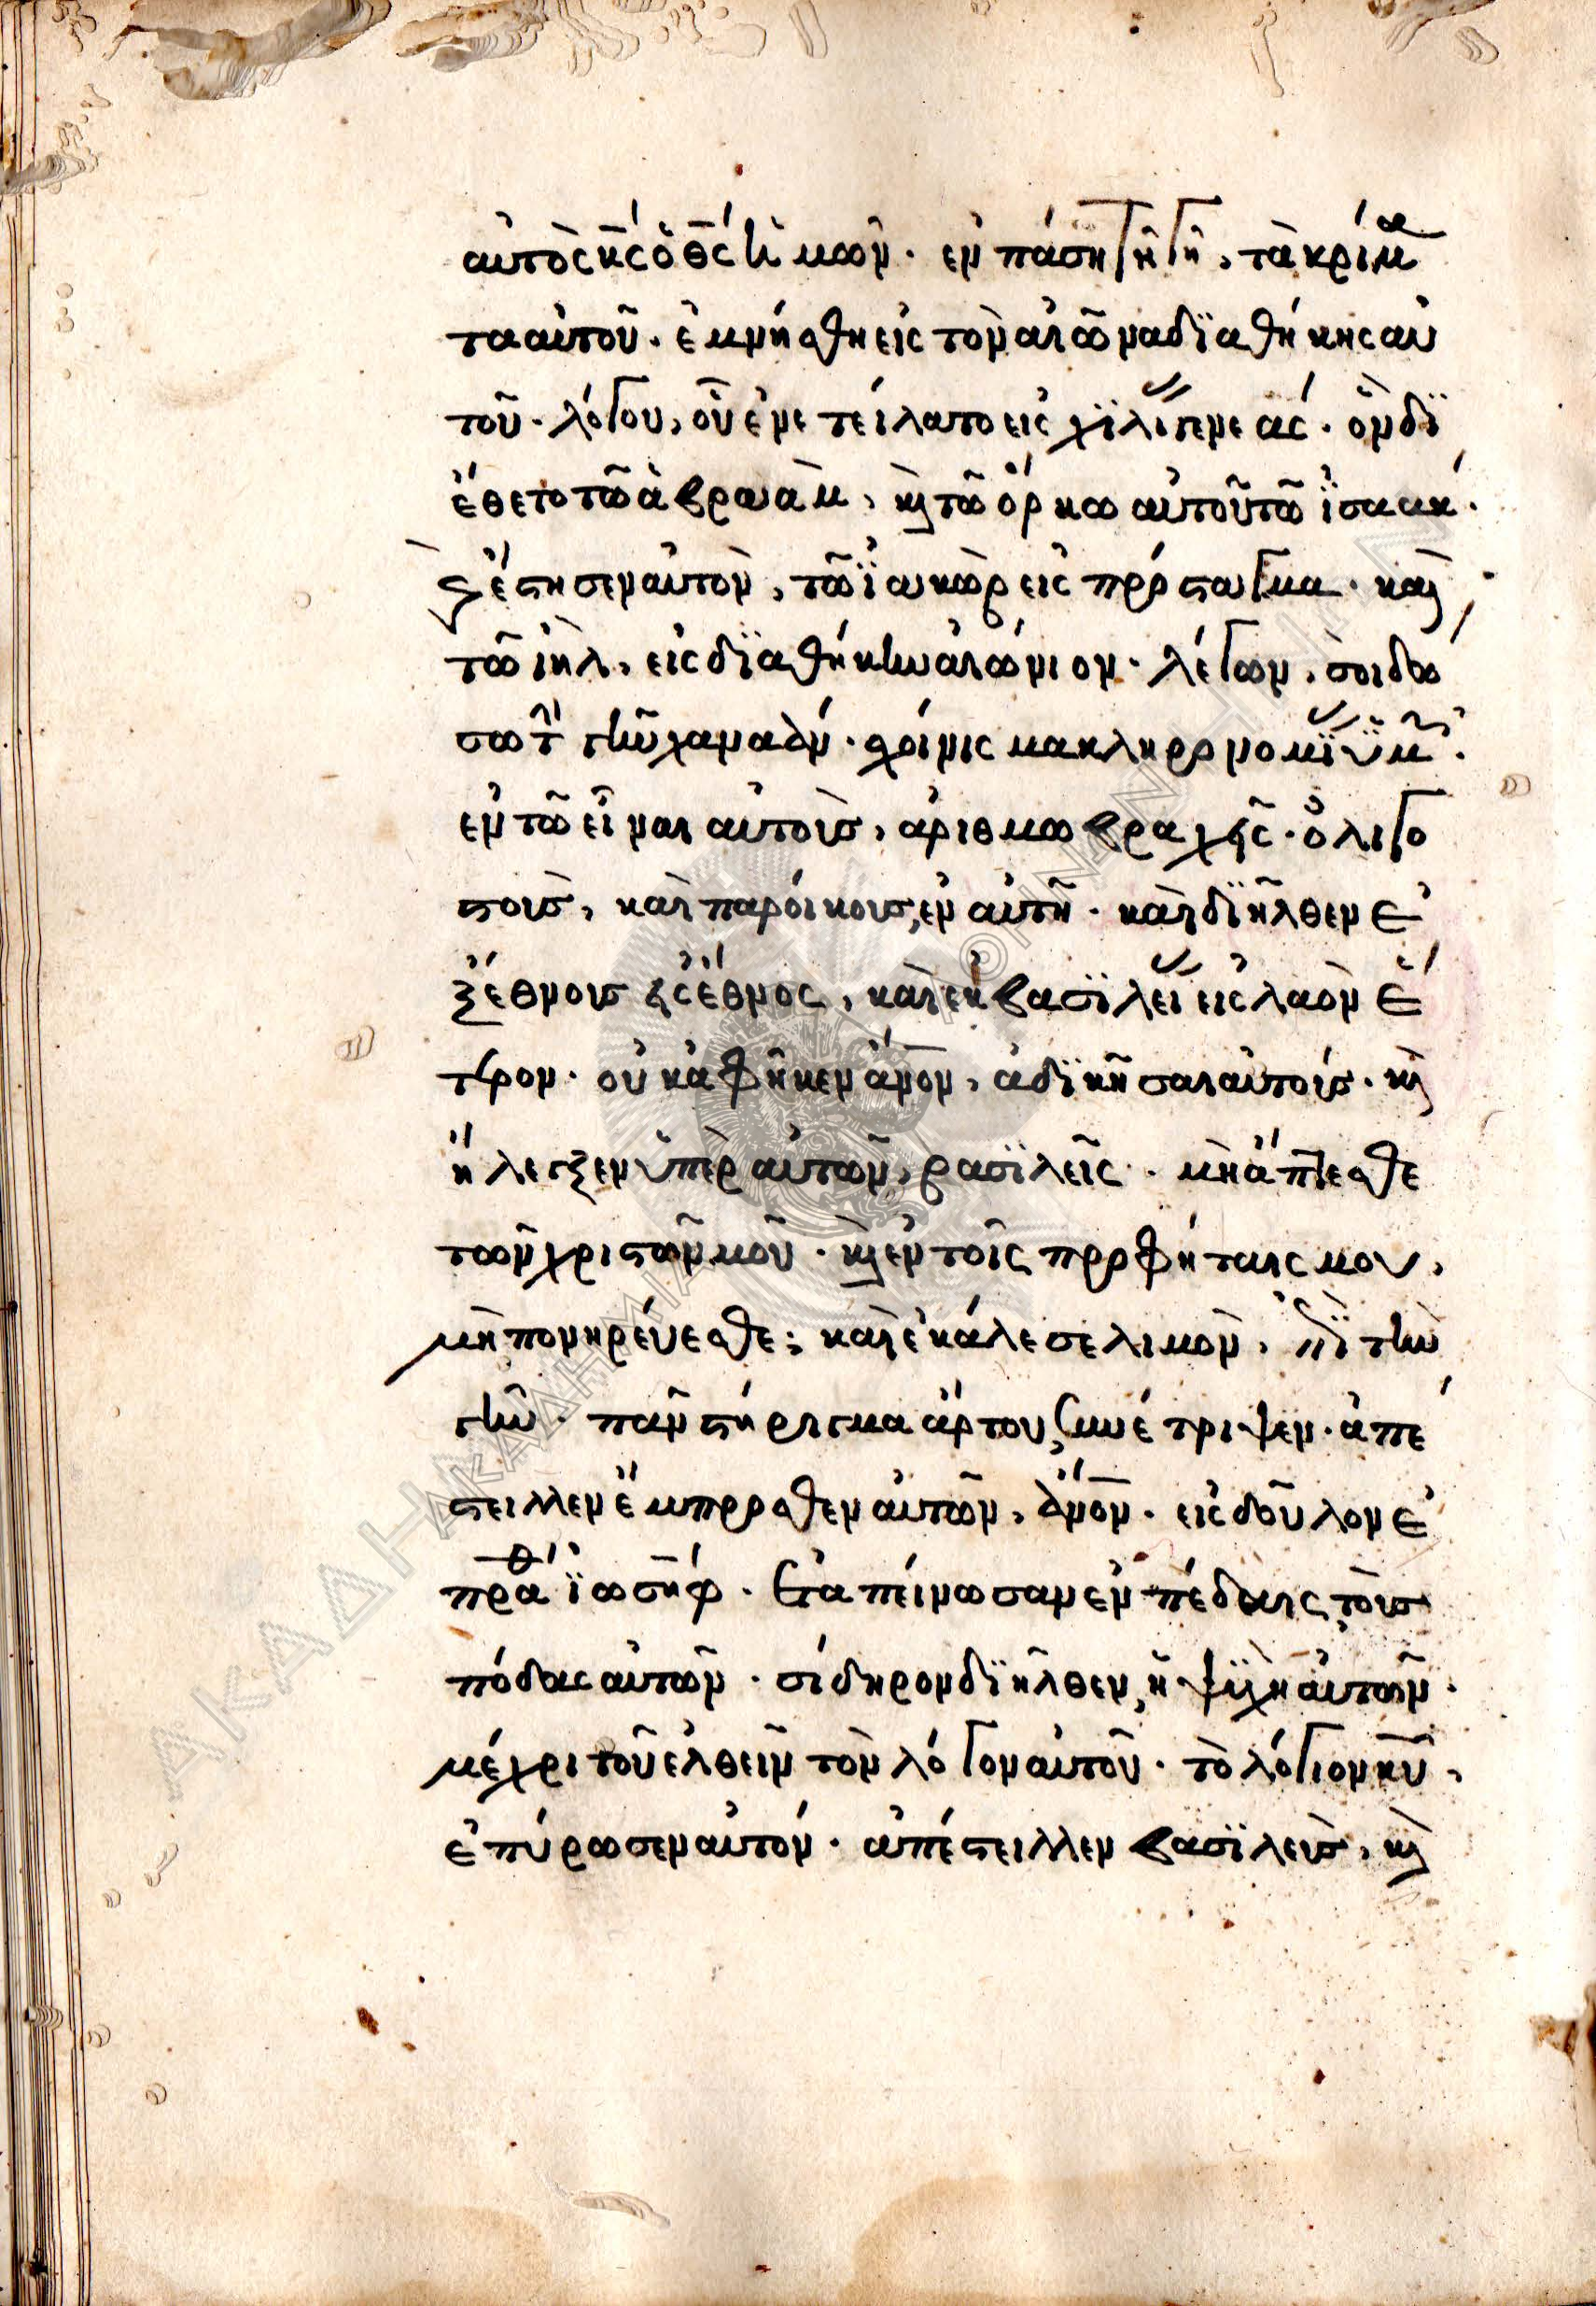 αὐτὸς κ̅ς́ ὁ θ̅ς́ ἡμῶν · ἐν πάση τῆ γῆ, τὰ κρίμα
τα αὐτοῦ · ἐμνήσθη εἰς τὸν αἰῶνα δϊαθήκης αὐ
τοῦ · λόγου, οὗ ἐνετείλατο εἰς χϊλίας γενεάς · ὃν δϊ
έθετο τῶ ἀβραὰμ, κὶ τῶ ὅρκω αὐτοῦ τῶ ϊσαάκ ·
κὶ ἔστησεν αὐτὸν, τῶ ϊακὼβ εἰς πρόσταγμα · καὶ
τῶ ι̅η̅λ, εἰς δϊαθήκην αἰώνιον · λέγων, σοὶ δώ
σω τὴν γῆν χαναάν · σχοίνισμα κληρονομίας ὑμῶν ·
ἐν τῶ εἶναι αὐτοὺς, ἀριθμῶ βραχεῖς · ὀλιγο
στοὺς, καὶ παροίκους, ἐν αὐτῆ · καὶ δϊῆλθεν ἐ
ξ ἔθνους εἰς ἔθνος, καὶ ἐκ βασϊλείας εἰς λαὸν ἕ
τερον · οὐκ ἀφῆκεν ἄ̅ν̅ο̅ν̅, ἀδϊκῆσαι αὐτούς · κὶ
ἤλεγξεν ὑπὲρ αὐτῶν, βασϊλεῖς · μὴ ἅπτεσθε
τῶν χριστῶν μοῦ · κὶ ἐν τοῖς προφήταις μου,
μὴ πονηρεύεσθε; καὶ ἐκάλεσε λιμὸν, ἐπὶ τὴν
γῆν · πᾶν στήριγμα ἄρτου, συνέτριψεν · ἀπέ
στειλλεν ἔμπροσθεν αὐτῶν, ἄ̅ν̅ο̅ν̅ · εἰς δοῦλον ἐ
πράθη ϊωσήφ · ἐταπείνωσαν ἐν πέδαις, τοὺς
πόδας αὐτῶν · σίδηρον δϊῆλθεν, ἡ ψϋχὴ αὐτῶν ·
μέχρι τοῦ ἐλθεῖν τὸν λόγον αὐτοῦ · τὸ λόγιον κ̅υ̅,
ἐπύρωσεν αὐτόν · ἀπέστειλλεν βασϊλεὺς, κὶ